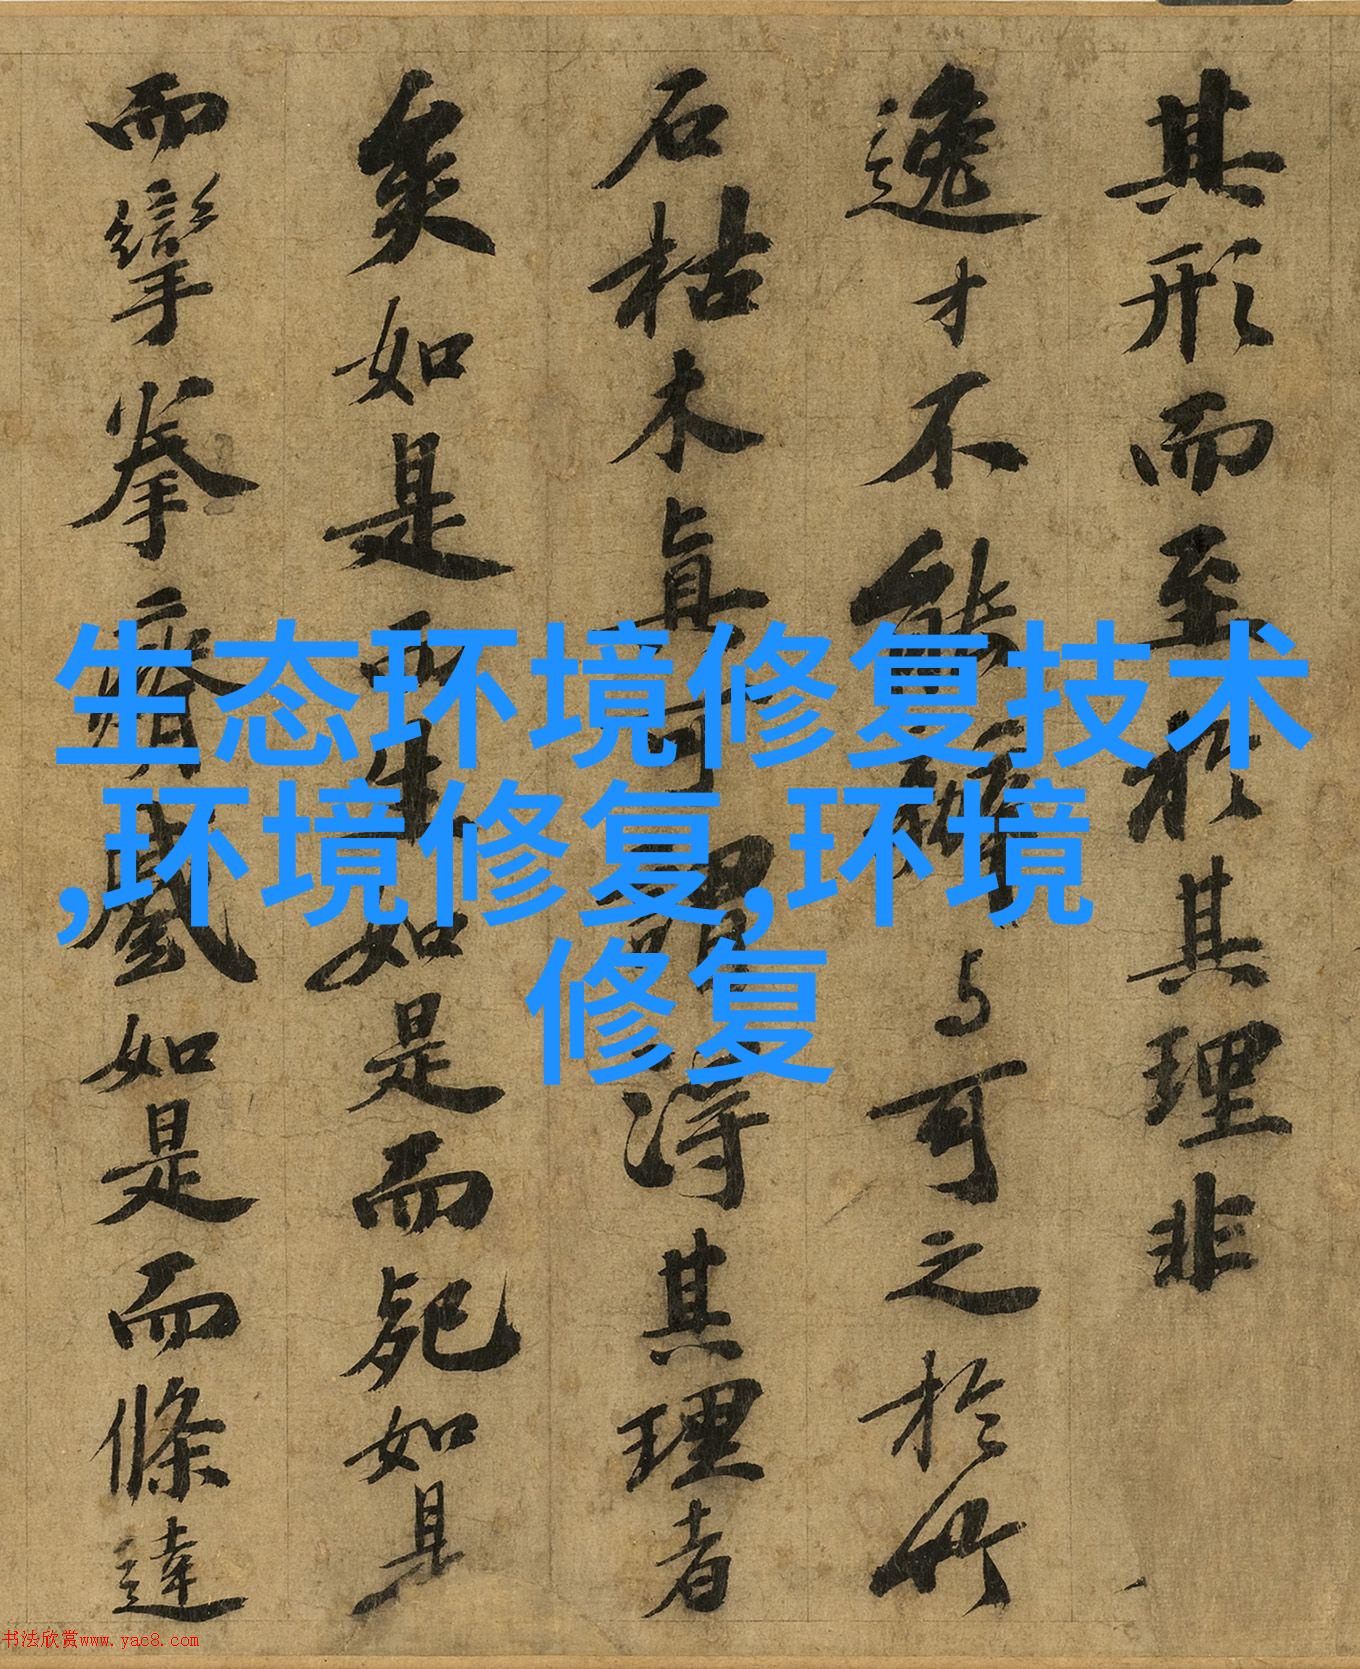 生态环境修复技术
,环境修复,环境
修复
其形而至於其理非
逸才不能辨与可之於竹
石枯木真可謂得其理者
矣如是而生如是而死如是
而攣拳瘠蹙如是而條達
书法欣赏www.yac8.com